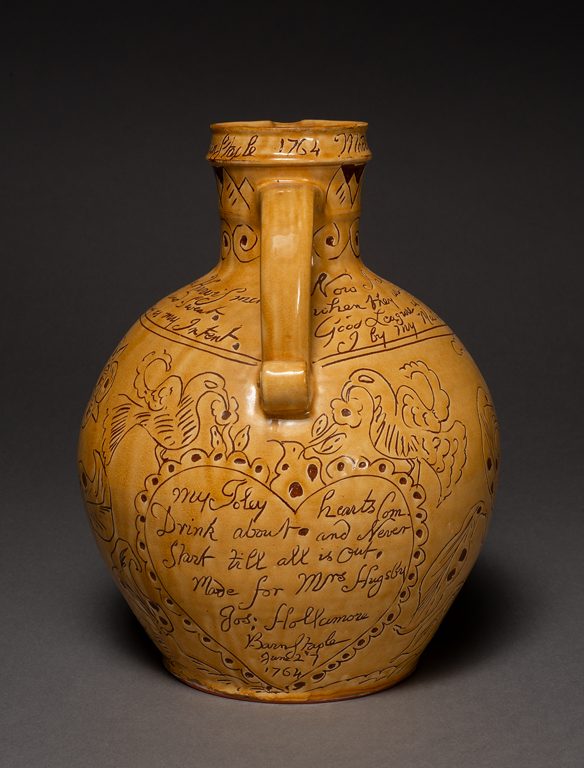 Staple 1764
Now
when they
my Intent. Good League
I by my
My Joley hearts Com
Drink about and Never
Start till all is Out,
Made for Mrs Hugsby
Jos: Hollamore
Barnstaple
June 27
1764